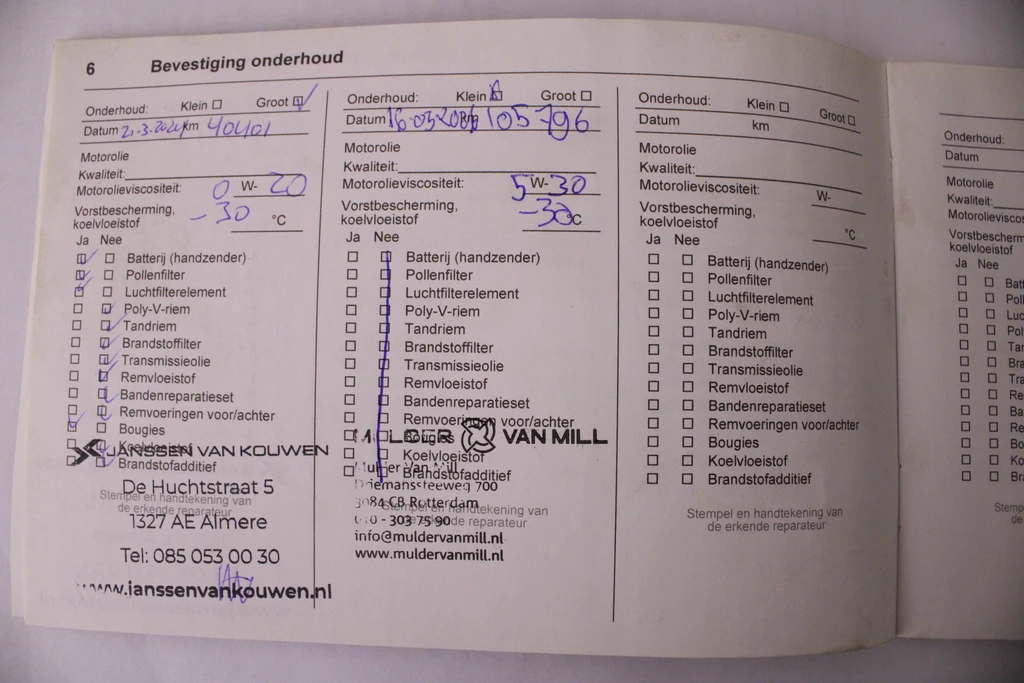 6 Bevestiging onderhoud
Onderhoud: Klein Groot
Datum 21-3-2024 km 40401
Motorolie
Kwaliteit:
Motorolieviscositeit: 0 W- 20
Vorstbescherming, koelvloeistof -30 °C
Ja Nee
Batterij (handzender)
Pollenfilter
Luchtfilterelement
Poly-V-riem
Tandriem
Brandstoffilter
Transmissieolie
Remvloeistof
Bandenreparatieset
Remvoeringen voor/achter
Bougies
Koelvloeistof
Brandstofadditief
JANSSEN VAN KOUWEN
De Huchtstraat 5
Stempel en handtekening van
de erkende reparateur
1327 AE Almere
Tel: 085 053 00 30
www.janssenvankouwen.nl
Onderhoud: Klein Groot
Datum 16-03-20 km 105796
Motorolie
Kwaliteit:
Motorolieviscositeit: 5 W- 30
Vorstbescherming, koelvloeistof -30 °C
Ja Nee
Batterij (handzender)
Pollenfilter
Luchtfilterelement
Poly-V-riem
Tandriem
Brandstoffilter
Transmissieolie
Remvloeistof
Bandenreparatieset
Remvoeringen voor/achter
Bougies
Koelvloeistof
Brandstofadditief
VAN MILL
Mulder Van Mill
Driemanssteeweg 700
3084 CB Rotterdam
Stempel en handtekening van
de erkende reparateur
010 - 303 75 90
info@muldervanmill.nl
www.muldervanmill.nl
Onderhoud: Klein Groot
Datum km
Motorolie
Kwaliteit:
Motorolieviscositeit: W-
Vorstbescherming,
koelvloeistof °C
Ja Nee
Batterij (handzender)
Pollenfilter
Luchtfilterelement
Poly-V-riem
Tandriem
Brandstoffilter
Transmissieolie
Remvloeistof
Bandenreparatieset
Remvoeringen voor/achter
Bougies
Koelvloeistof
Brandstofadditief
Stempel en handtekening van
de erkende reparateur
Onderhoud:
Datum
Motorolie
Kwaliteit:
Motorolieviscos
Vorstbescherm
koelvloeistof
Ja Nee
Batt
Poll
Luc
Pol
Tar
Bra
Tra
Re
Ba
Re
Bo
Ko
Br
Stemp
de